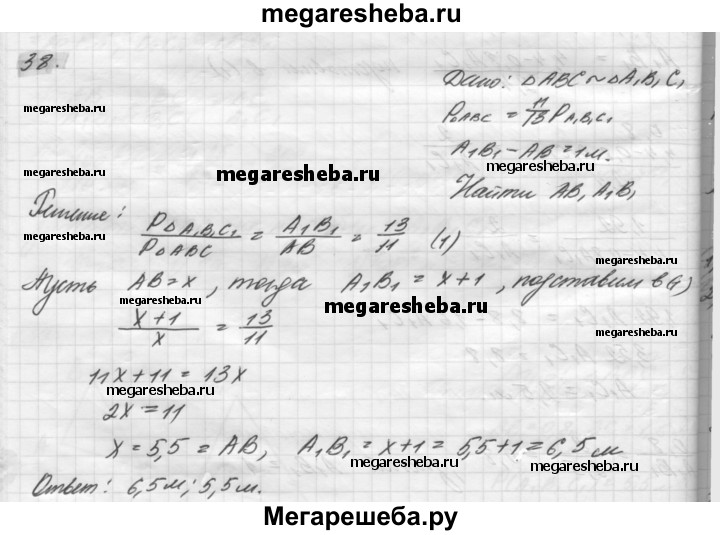 megaresheba.ru
38.
Дано: ΔABC ~ ΔA₁B₁C₁
megaresheba.ru
PΔABC = 11/13 P A₁B₁C₁
megaresheba.ru
A₁B₁ − AB = 1 м.
megaresheba.ru
megaresheba.ru
Найти AB, A₁B₁
megaresheba.ru
Решение:
PΔA₁B₁C₁/PΔABC = A₁B₁/AB = 13/11 (1)
megaresheba.ru
megaresheba.ru
Пусть AB = x, тогда A₁B₁ = x+1, подставим в (1)
megaresheba.ru
megaresheba.ru
x+1/x = 13/11
megaresheba.ru
11x+11 = 13x
megaresheba.ru
2x = 11
x = 5,5 = AB, A₁B₁ = x+1 = 5,5+1 = 6,5 м
megaresheba.ru
megaresheba.ru
Ответ: 6,5 м; 5,5 м.
Мегарешеба.ру